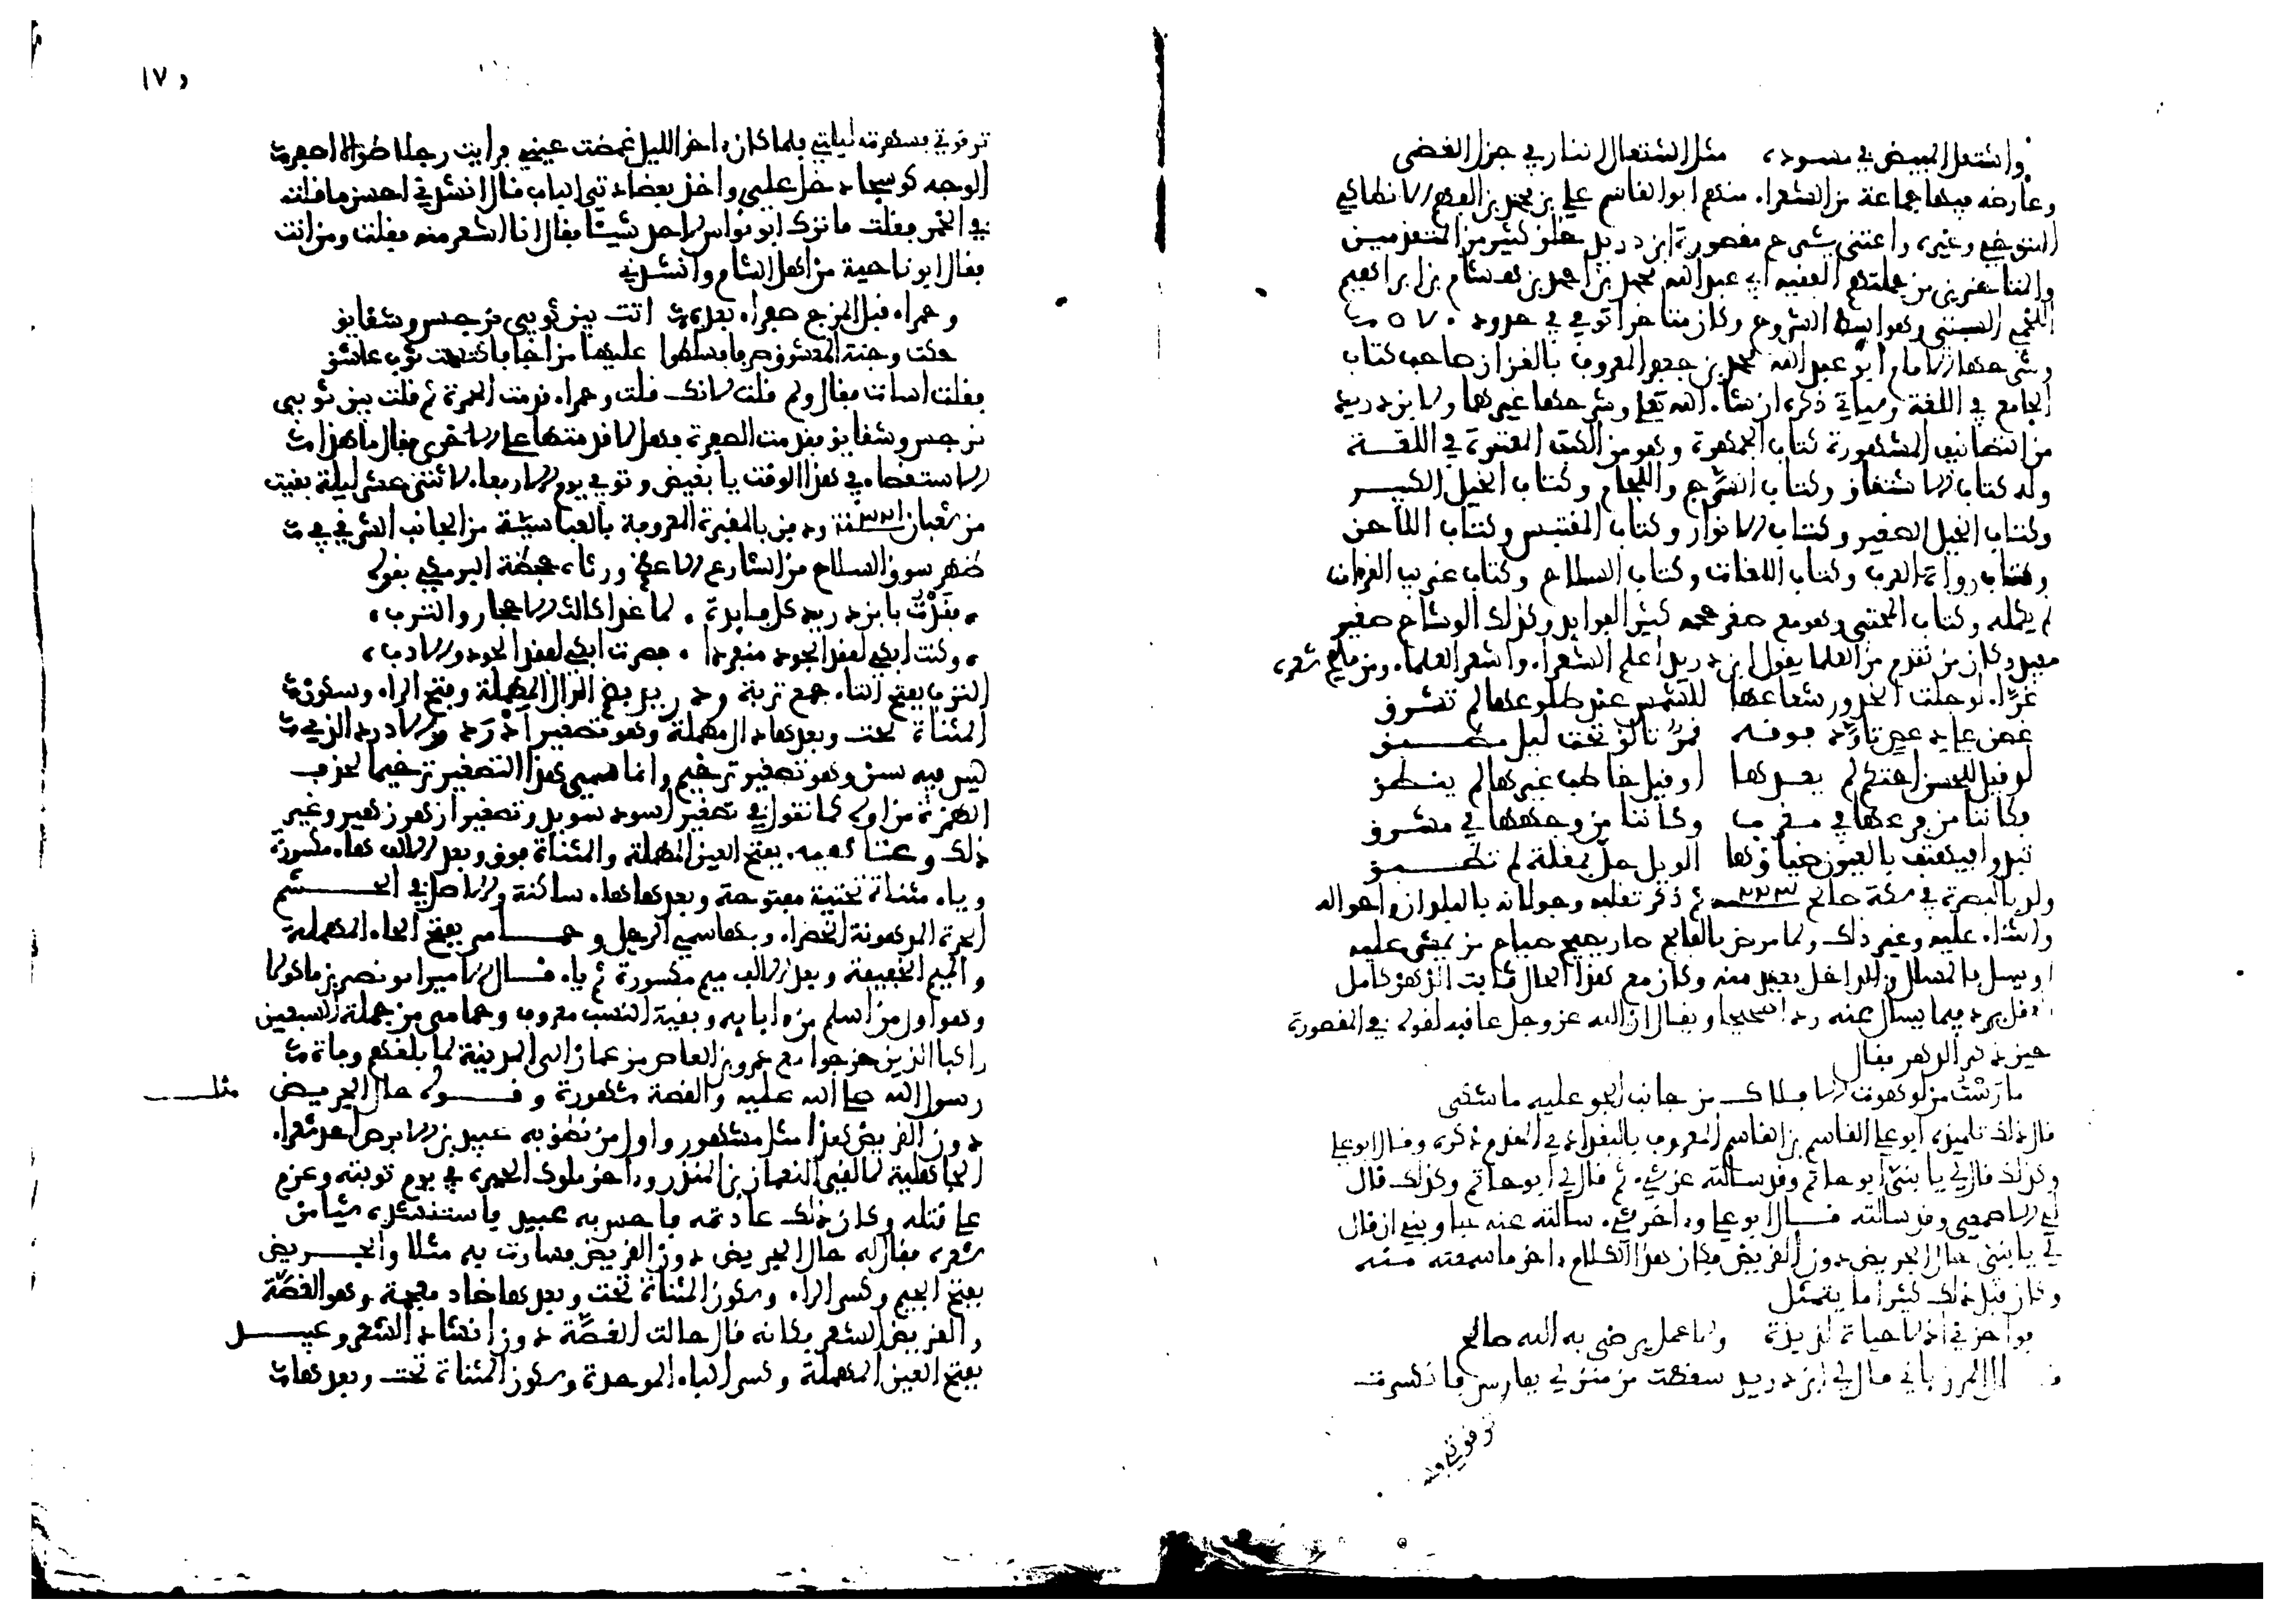 واشتعل المبيض في مسوده مثل اشتعال النار في جزل الغضى
وعارضه فيها جماعة من الشعراء منهم ابو القاسم علي بن محمد بن الفهم الانطاكي
التنوخي وغيره واعتنى بشرح مقصورة ابن دريد خلق كثير من المتقدمين
والمتاخرين من جملتهم الفقيه ابي عبد الله محمد بن احمد بن هشام بن ابراهيم
اللخمي السبتي وهو ابسط الشروح وكان متاخرا توفي في حدود ٥٧٠
وشرحها الامام ابو عبد الله محمد بن جعفر المعروف بالقزاز صاحب كتاب
الجامع في اللغة وسياتي ذكره ان شاء الله تعلى وشرحها غيرها ولابن دريد
من التصانيف المشهورة كتاب الجمهرة وهو من الكتب المعتبرة في اللغة
وله كتاب الاشتقاق وكتاب السرج واللجام وكتاب الخيل الكبير
وكتاب الخيل الصغير وكتاب الانوار وكتاب المقتبس وكتاب الملاحن
وكتاب رواة العرب وكتاب اللغات وكتاب السلاح وكتاب غريب القرءان
لم يكمله وكتاب المجتنى وهو مع صغر حجمه كثير الفوايد وكذلك الوشاح صغير
مفيد وكان من تقدم من العلما يقول ابن دريد اعلم الشعراء واشعر العلماء ومن مليح شعره
غراء لو جلت الخدور شعاعها للشمس عند طلوعها لم تشرق
غصن على دعص تاود فوقه قمر تالق تحت ليل مطبق
لو قيل للحسن احتكم لم يعدها او قيل خاطب غيرها لم ينطق
فكاننا من فرعها في مغرب وكاننا من وجهها في مشرق
تبدو فيهتف بالعيون ضياؤها الويل حل بمقلة لم تطبق
ولد بالبصرة في سكة صالح ٢٢٣ ثم ذكر تقلبه وجولانه بالبلدان واحواله
والثناء عليه وغير ذلك ولما مرض بالفالج صار يصيح صياح من يمشى عليه
او يسل بالمسال والداخل بعيد منه وكان مع هذا الحال ثابت الذهن كامل
العقل يرد فيما يسال عنه ردا صحيحا ويقال ان الله عز وجل عاقبه لقوله في المقصورة
حين ذكر الدهر فقال
مارست من لو هوت الافلاك من جانب الجو عليه ما شكى
قال ذلك تلميذه ابو علي القاسم بن القاسم المعروف بالبغداذي المقدم ذكره وقال ابو علي
وكذلك قال لي يا بني ابو حاتم وقد سالته عن شيء ثم قال لي ابو حاتم وكذلك قال
لي الاصمعي وقد سالته قال ابو علي وءاخر شيء سالته عنه جاوبني ان قال
لي يا بني حال الجريض دون القريض فكان هذا الكلام ءاخر ما سمعته منه
وكان قبل ذلك كثيرا ما يتمثل
فواحزني اذ لا حياة لذيذة ولا عمل يرضى به الله صالح
قال المرزباني قال لي ابن دريد سقطت من منزلي بفارس فانكسرت
ترقوتي فسهرت
١٧٥
ترقوتي فسهرت ليلتي فلما كان ءاخر الليل غمضت عيني فرايت رجلا طوالا اصفر
الوجه كوسجا دخل علي واخذ بعضادتي الباب قال انشدني احسن ما قلت
في الخمر فقلت ما ترك ابو نواس لاحد شيئا فقال انا اشعر منه فقلت ومن انت
فقال ابو ناجية من اهل الشام وانشدني
وحمراء قبل المزج صفراء بعده اتت بين ثوبي نرجس وشقايق
حكت وجنة المعشوق صرفا فسلطوا عليها مزاجا فاكتست ثوب عاشق
فقلت اسات فقال ولم قلت لانك قلت وحمراء قدمت الحمرة ثم قلت بين ثوبي
نرجس وشقايق فقدمت الصفرة فهل لا قدمتها على الاخرى فقال ما هذا
الاستقصاء في هذا الوقت يا بغيض وتوفي يوم الاربعاء لاثنتي عشر ليلة بقيت
من شعبان ٣٢١ سنة ودفن بالمقبرة المعروفة بالعباسية من الجانب الشرقي في
ظهر سوق السلاح من الشارع الاعظم ورثاه جحظة البرمكي بقوله
فقدت بابن دريد كل فايدة لما غدا ثالث الاحجار والترب
وكنت ابكي لفقد الجود منفردا فصرت ابكي لفقد الجود والادب
الترب بفتح التاء جمع تربة ودريد بضم الدال المهملة وفتح الراء وسكون
المثناة تحت وبعدها دال مهملة وهو تصغير ادرد والادرد الذي
ليس فيه سن وهو تصغير ترخيم وانما سمي هذا التصغير ترخيما لحذف
الهمزة من اوله كما تقول في تصغير اسود سويد وتصغير ازهر زهير وغير
ذلك وعتاهيه بفتح العين المهملة والمثناة فوق وبعد الالف هاء مكسورة
وياء مثناة تحتية مفتوحة وبعدها هاء ساكنة والاصل في الحنتم
الجرة المدهونة الخضراء وبها سمي الرجل وحمامي بفتح الحاء المهملة
والميم الخفيفة وبعد الالف ميم مكسورة ثم ياء قال الامير ابو نصر بن ماكولا
وهو اول من اسلم من ءابايه وبقية النسب معروف وحمامي من جملة السبعين
راكبا الذين خرجوا مع عمرو بن العاص من عمان الى المدينة لما بلغهم وفاة
رسول الله صلى الله عليه والقصة مشهورة وقوله حال الجريض مثل
دون القريض هذا مثل مشهور واول من نطق به عبيد بن الابرص احد شعراء
الجاهلية لما لقي النعمان بن المنذر ءاخر ملوك الحيرة في يوم توبته وعزم
على قتله وكان ذلك عادته فاحس به عبيد فاستنشده شيا من
شعره فقال له حال الجريض دون القريض فصارت به مثلا والجريض
بفتح الجيم وكسر الراء وسكون المثناة تحت وبعدها ضاد معجمة وهو الغصة
والقريض الشعر فكانه قال حالت الغصة دون انشاد الشعر وعبيد
بفتح العين المهملة وكسر الباء الموحدة وسكون المثناة تحت وبعدها